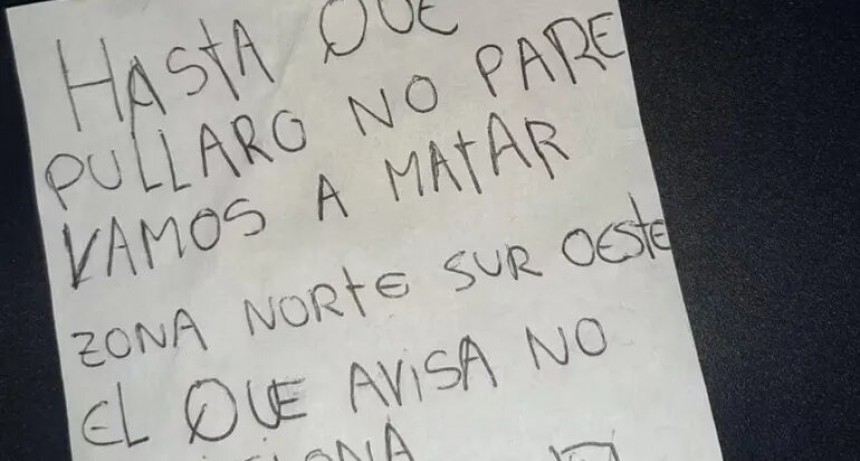 HASTA QUE
PULLARO NO PARE
VAMOS A MATAR
ZONA NORTE SUR OESTE
EL QUE AVISA NO